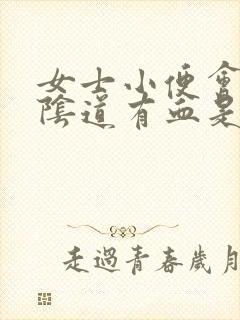 女士小便會
陰道有血是
走過青春歲月